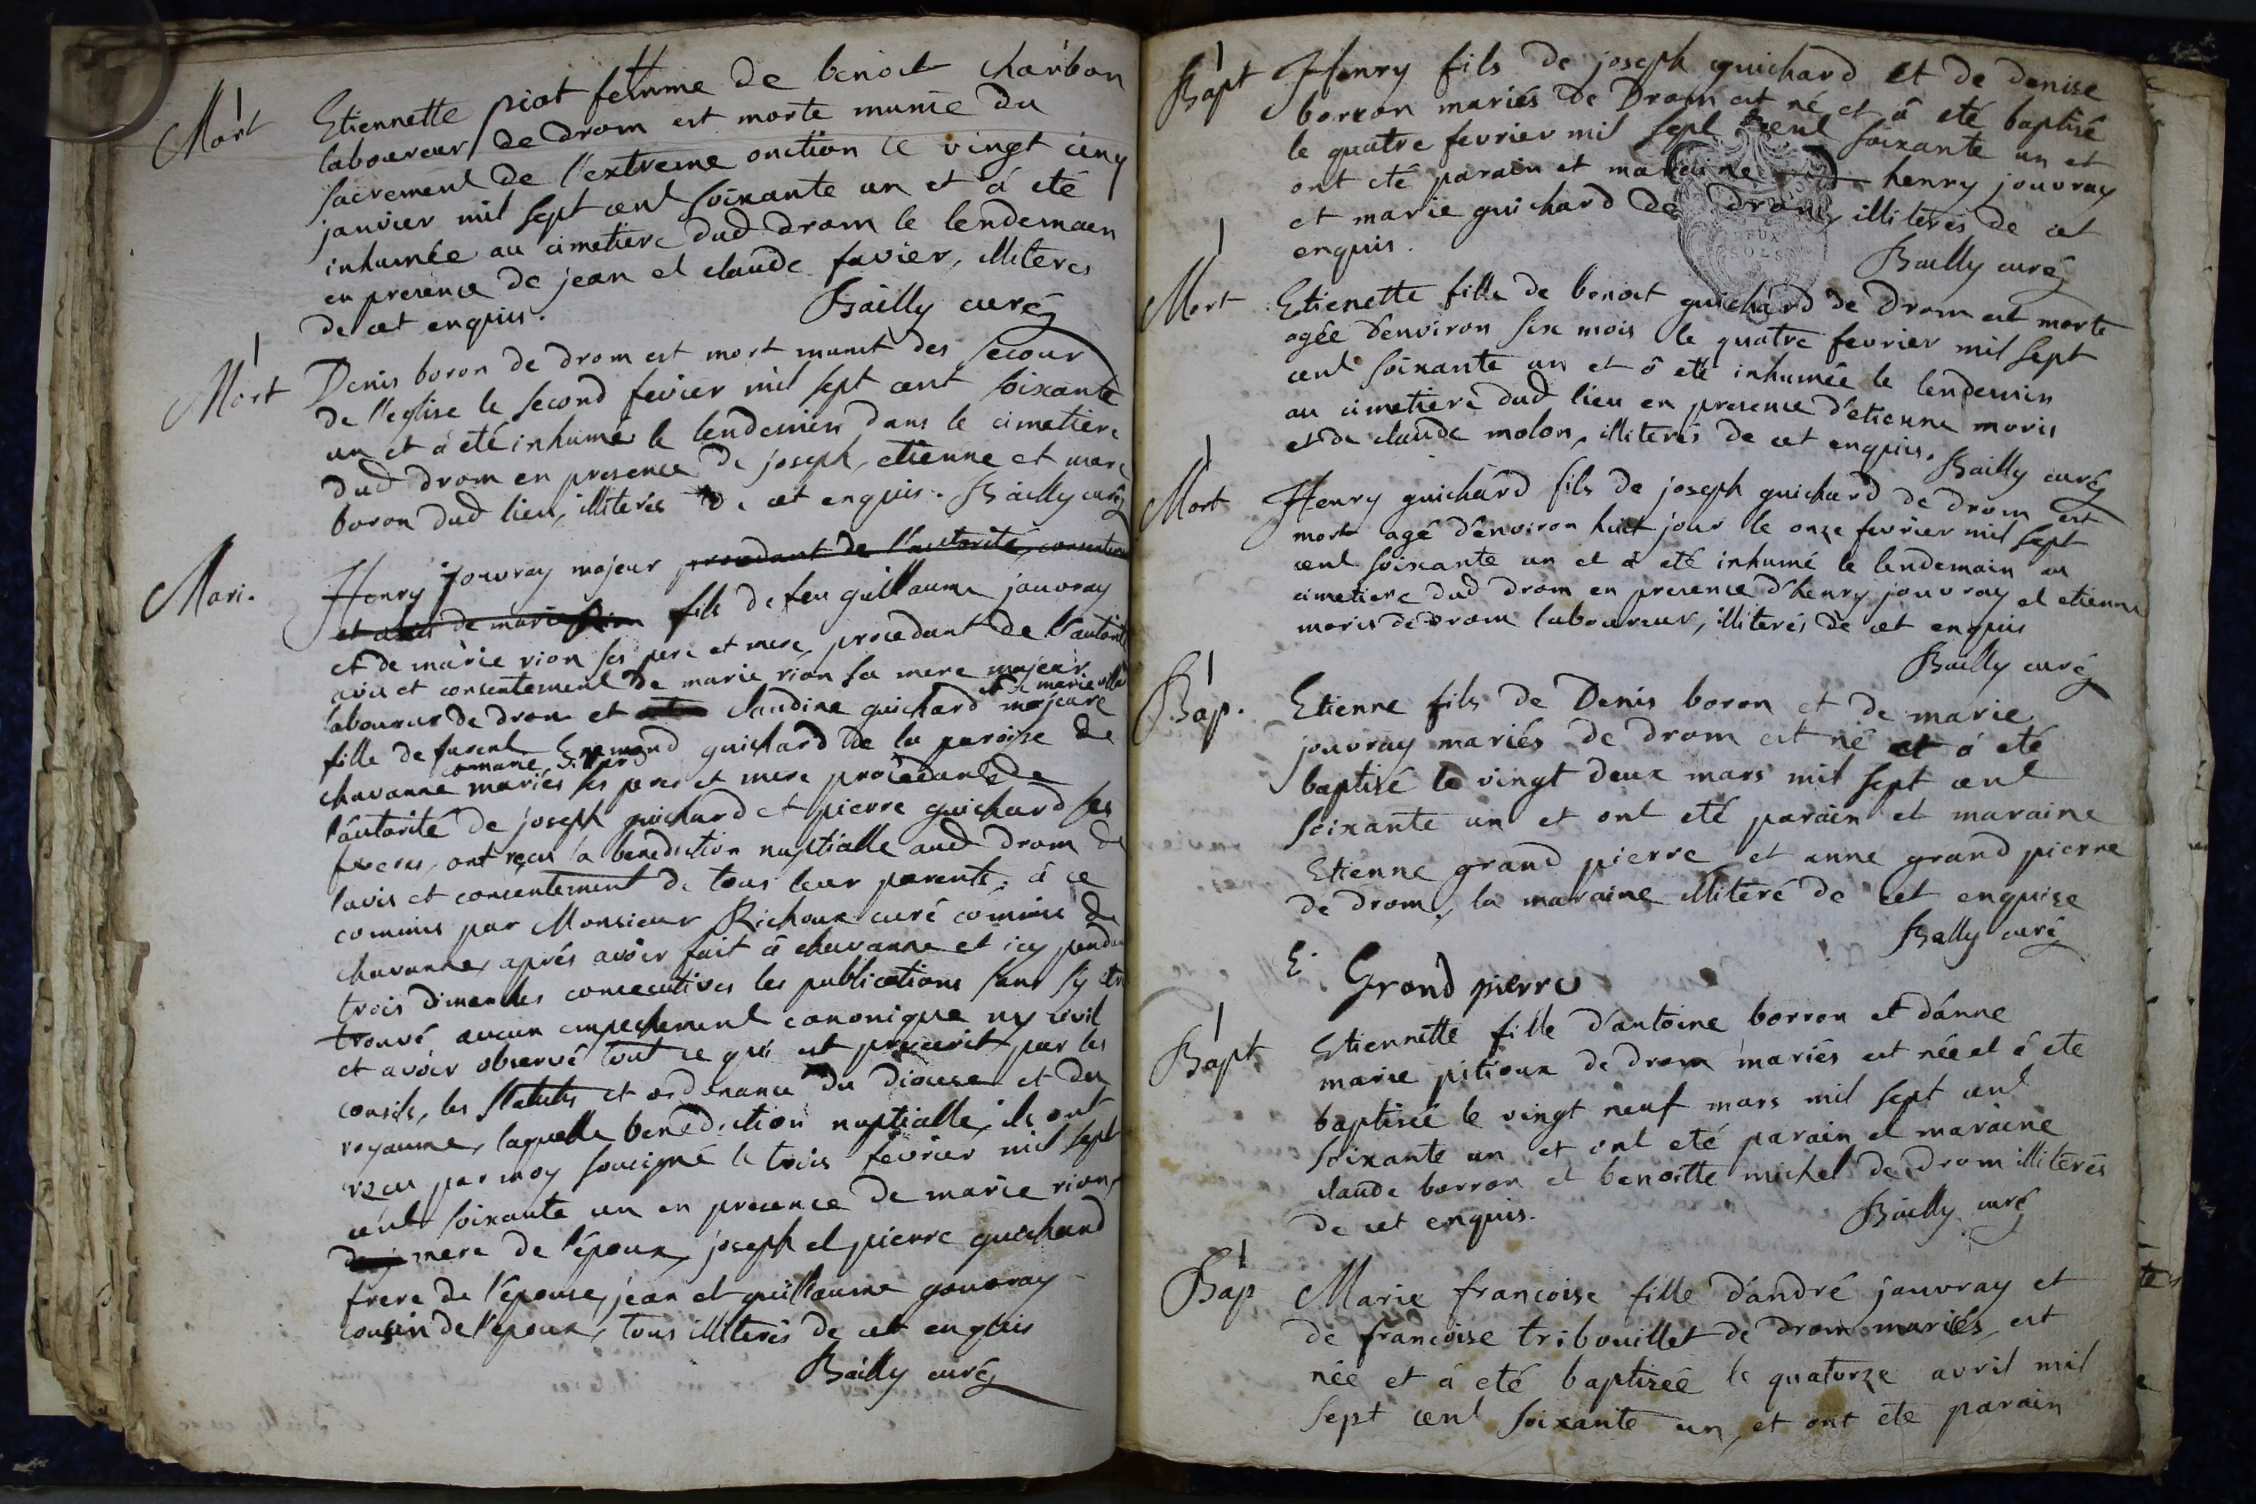 Mort
Etiennette piot femme de benoit charbon
laboureur de drom est morte munie du
sacrement de l'extreme onction le vingt cinq
janvier mil sept cent soixante un et á eté
inhumée au cimetiere dud drom le lendemaen
en presence de jean et claude favier, illiteres
de cet enquis.
Bailly curé
Mort
Denis boron de drom est mort munit des secour
de l'eglise le second fevrier mil sept cent soixante
un et á eté inhumé le lendemein dans le cimetiere
dud drom en presence de joseph, etienne et marc
boron dud lieu, illiterés de cet enquis. Bailly curé
Mari.
Henry jouvray majeur procedant de l'autorité, consentem
et avis de marie rion fils de feu guillaume jouvray
et de marie rion ses pere et mere, procedant de l'autorité
avis et consentement de marie rion sa mere majeur
laboureur de drom et claudine guichard majeure
fille de guichard de la paroise de
chavanne mariés ses peres et mere procedante de
l'autorité de joseph guichard et pierre guichard ses
freres, ont reçu la benediction nuptialle aud drom de
lavis et consentement de tous leur parents, á ce
commis par Monsieur Richoux curé commis de
chavanne, aprés avoir fait á chavanne et icy pendan
trois dimanches consecutives les publications sans sy etre
trouvé aucun empechement canonique ny civil
et avoir observé tout ce qui est prescrit par les
consils, les statuts et ordonance du diocese et du
royaume, laquelle benediction nuptialle ils ont
reçu par moy sousigné le trois fevrier mil sept
cent soixante un en presence de marie rion,
mere de l'époux, joseph et pierre guichard
frere de l'épouse, jean et guillaume gouvray
cousin de l'époux, tous illiterés de cet enquis
Bailly curé
Bapt
Henry fils de joseph guichard et de denise
borron mariés de Drom est né et á eté baptisé
le quatre fevrier mil sept cent soixante un et
ont eté parain et maraine henry jouvray
et marie guichard de drom, illiterés de cet
enquis.
Bailly curé
Mort
Etienette fille de benoit guichard de Drom est morte
agée d'environ six mois le quatre fevrier mil sept
cent soixante un et á eté inhumée le lendemin
au cimetiere dud lieu en presence d'etienne moris
et de claude molon, illiterés de cet enquis.
Bailly curé
Mort
Henry guichard fils de joseph guichard de drom est
mort agé d'environ huit jour le onze fevrier mil sept
cent soixante un et á eté inhumé le lendemain au
cimetiere dud drom en presence d'henry jouvray et etienne
moris de drom laboureur, illiterés de cet enquis
Bailly curé
Bap.
Etienne fils de Denis boron et de marie
jouvray mariés de drom est né et á eté
baptisé le vingt deux mars mil sept cent
soixante un et ont eté parain et maraine
Etienne grand pierre et anne grand pierre
de drom, la maraine illiteré de cet enquise
Bailly curé
E. Grand pierre
Bapt
Etiennette fille d'antoine borron et d'anne
marie pitioux de drom mariés est née et á eté
baptisée le vingt neuf mars mil sept cent
soixante un et ont eté parain et maraine
claude borron et benoitte michel de drom illiterés
de cet enquis.
Bailly curé
Bap
Marie françoise fille d'andré jouvray et
de françoise tribouillet de drom mariés, est
née et á eté baptisée le quatorze avril mil
sept cent soixante un, et ont eté parain